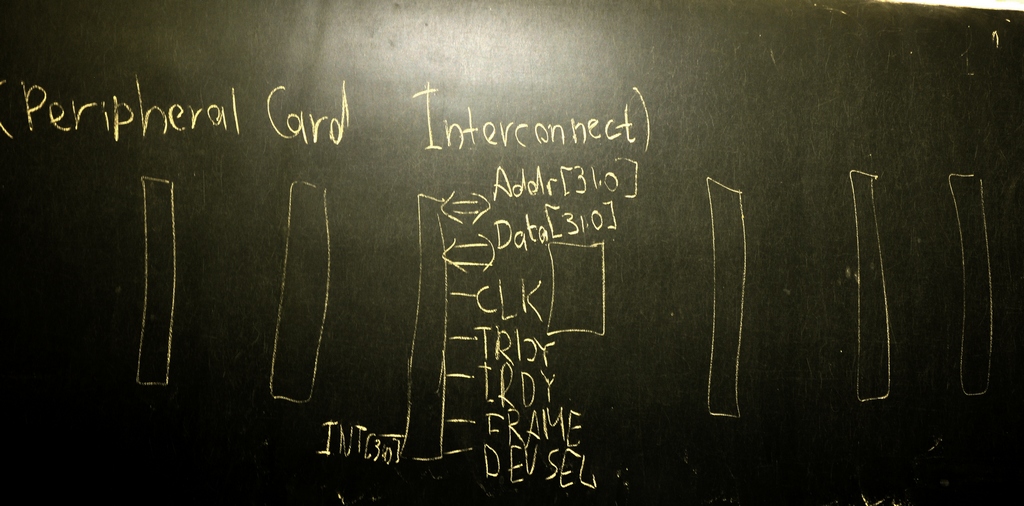 (Peripheral Card Interconnect)
Addr[31:0]
Data[31:0]
CLK
TRDY
IRDY
FRAME
INT[3:0]
DEVSEL